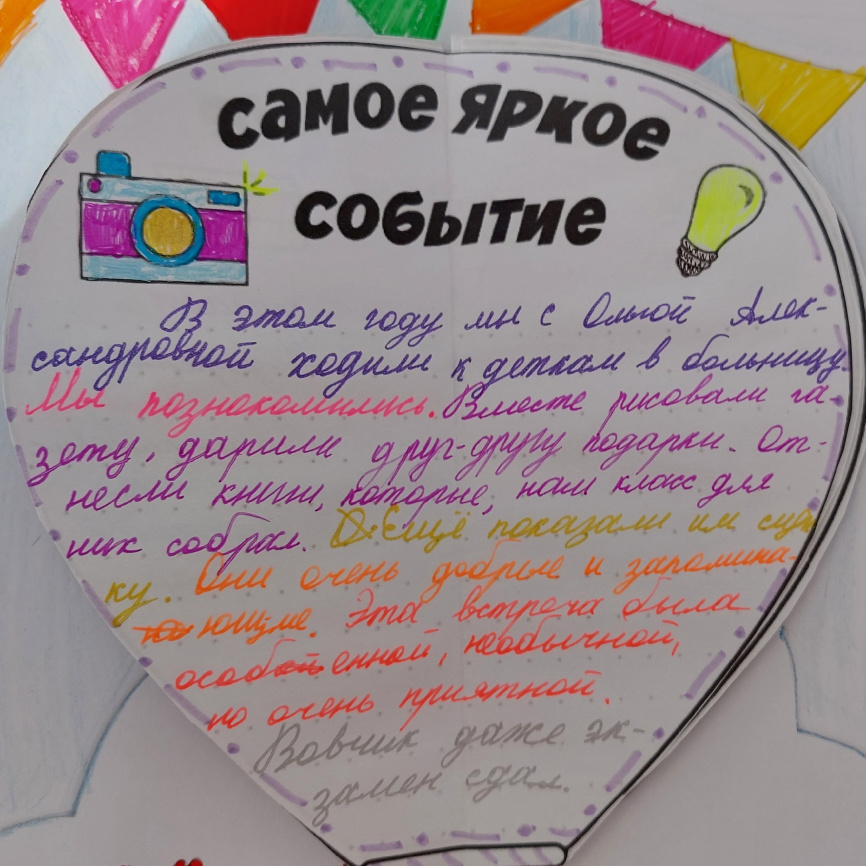 самое яркое
событие
В этом году мы с Ольгой Алек-
сандровной ходили к деткам в больницу.
Мы познакомились. Вместе рисовали га-
зету, дарили друг-другу подарки. От-
несли книги, которые, наш класс для
них собрал. Ещё показали им сцен-
ку. Они очень добрые и запомина-
ющие. Эта встреча была
особенной, необычной,
но очень приятной.
Вовчик даже эк-
замен сдал.